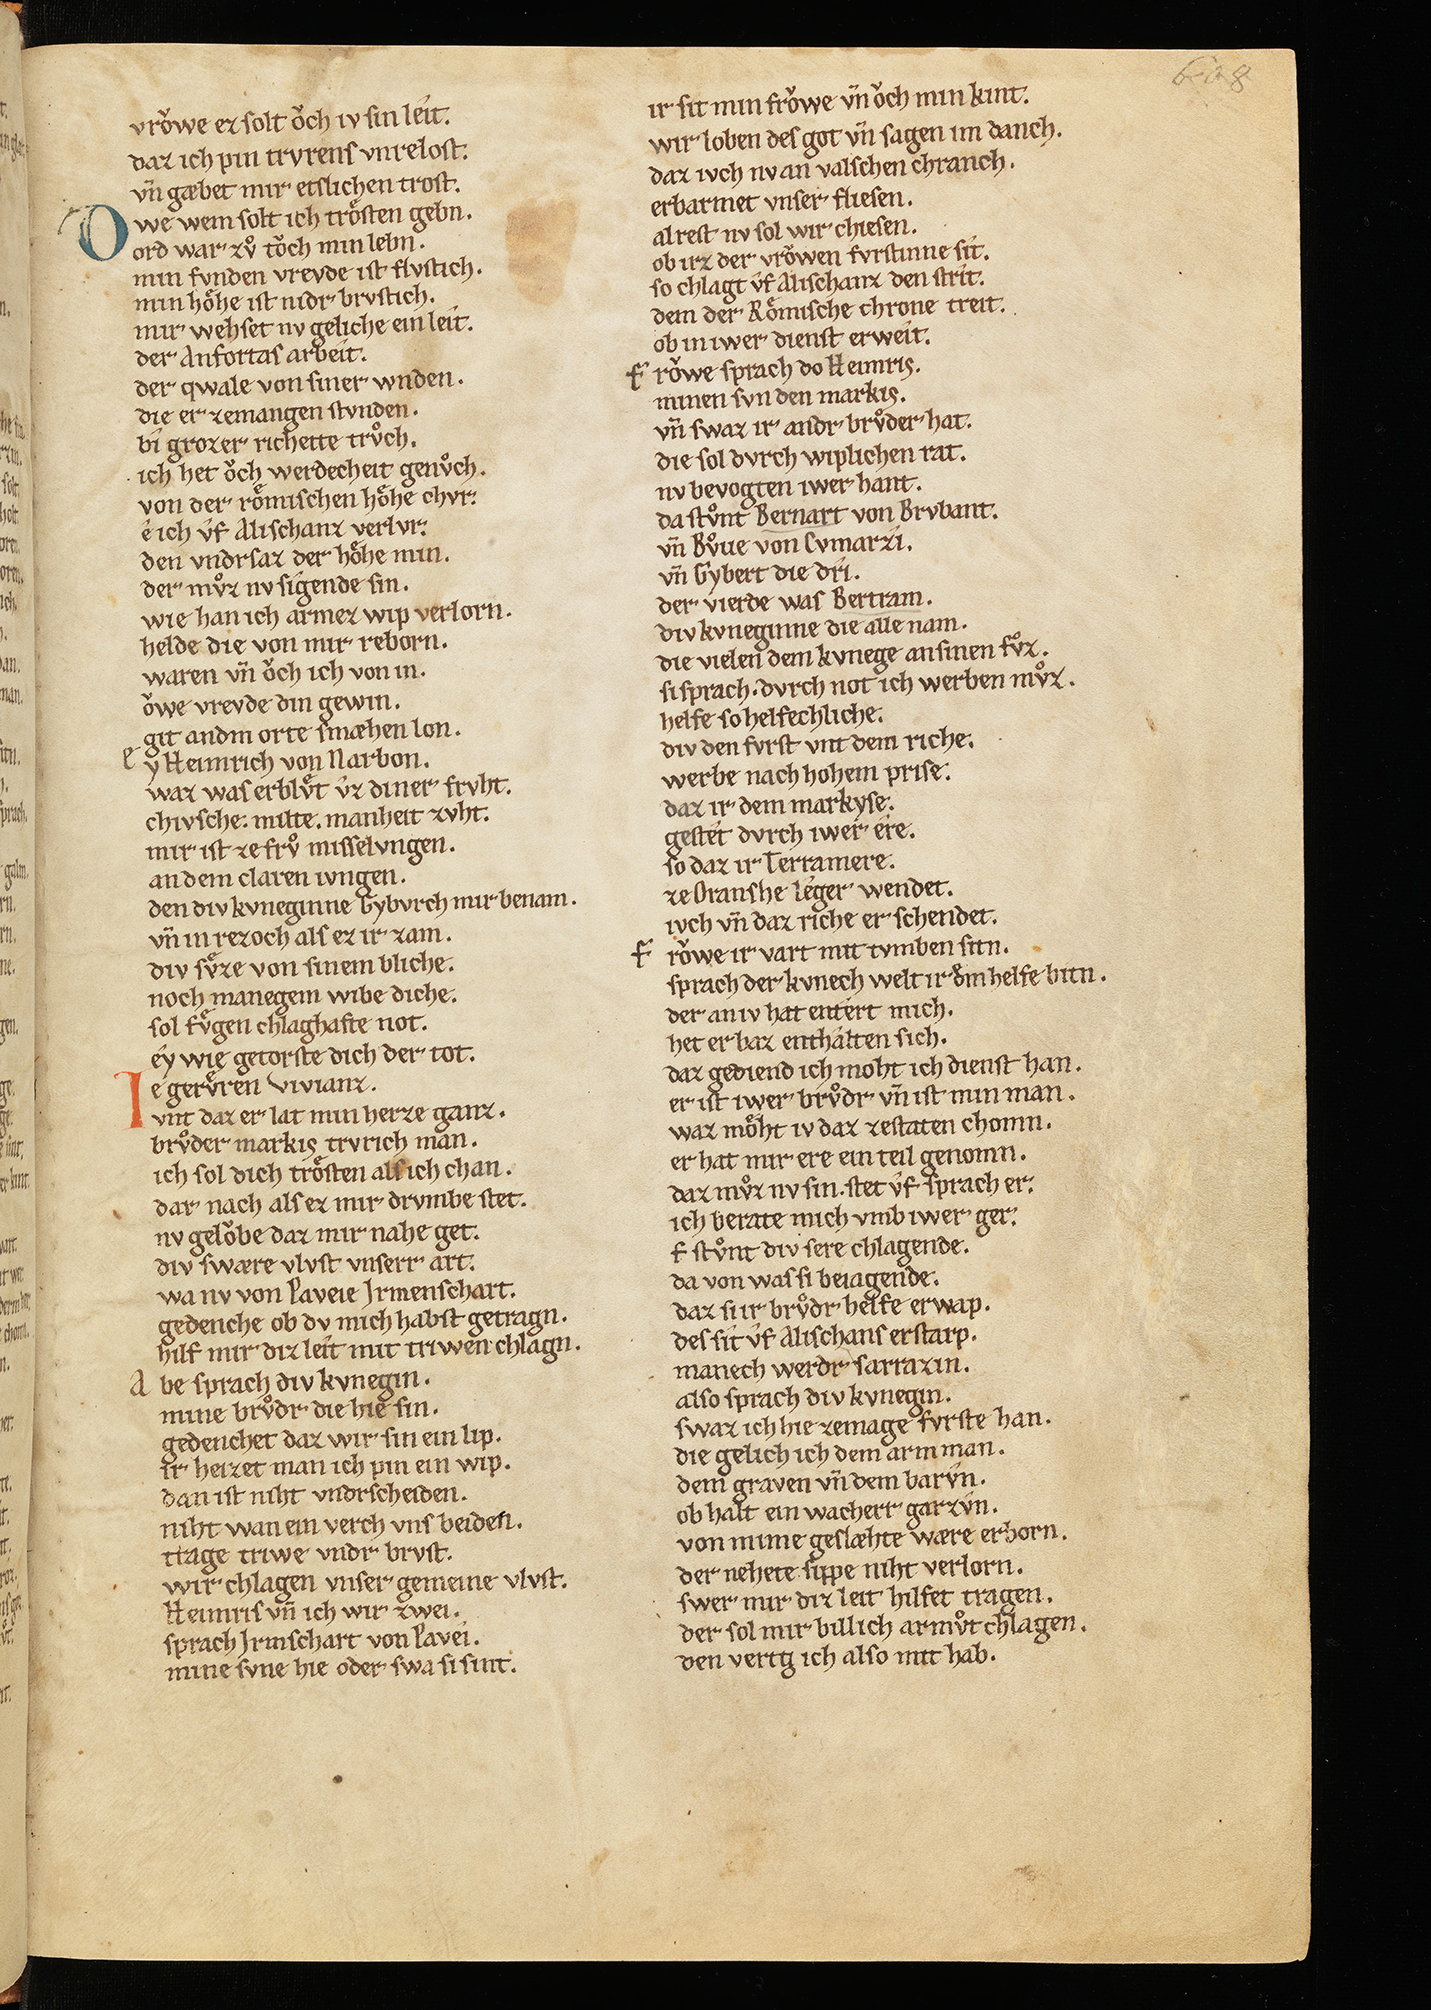 608
vrǒwe ez solt ǒch iv sin leit.
daz ich pin trvrens vnrelost.
vn̄ gæbet mir etslichen trost.
Owe wem solt ich trǒsten gebn.
ord war zv̊ tǒch min lebn.
min fvnden vrevde ist flvstich.
min hǒhe ist nidr brvstich.
mir wehset nv geliche ein leit.
der Anfortas arbeit.
der qwale von siner wnden.
die er zemangen stvnden.
bi grozer richeite trv̊ch.
ich het ǒch werdecheit genv̊ch.
von der rǒmischen hǒhe chvr.
é ich v́f Alischanz verlvr.
den vndrsaz der hǒhe min.
der mv̊z nv sigende sin.
wie han ich armez wip verlorn.
helde die von mir reborn.
waren vn̄ ǒch ich von in.
ǒwe vrevde din gewin.
git andm orte smæhen lon.
ey Heimrich von Narbon.
waz was erblv̊t v́z diner frvht.
chivsche. milte. manheit zvht.
mir ist ze frv̊ misselvngen.
an dem claren ivngen.
den div kvneginne Gybvrch mir benam.
vn̄ in rezoch als ez ir zam.
div sv̊ze von sinem bliche.
noch manegem wibe diche.
sol fv̊gen chlaghafte not.
éy wie getorste dich der tot.
Ie gerv̊ren Vivianz.
vnt daz er lat min herze ganz.
brv̊der markis trvrich man.
ich sol dich trǒsten als ich chan.
dar nach als ez mir drvmbe stet.
nv gelǒbe daz mir nahe get.
div swære vlvst vnserr art.
wa nv von Paveie Irmenschart.
gedenche ob dv mich habst getragn.
hilf mir diz leit mit triwen chlagn.
Abe sprach div kvnegin.
mine brv̊dr die hie sin.
gedenchet daz wir sin ein lip.
ir heizet man ich pin ein wip.
dan ist niht vndrscheiden.
niht wan ein verch vns beiden.
trage triwe vndr brvst.
wir chlagen vnser gemeine vlvst.
Heimris vn̄ ich wir zwei.
sprach Irmschart von Pavei.
mine svne hie oder swa si sint.
ir sit min frǒwe vn̄ ǒch min kint.
wir loben des got vn̄ sagen im danch.
daz ivch nv an valschen chranch.
erbarmet vnser fliesen.
alrest nv sol wir chiesen.
ob irz der vrǒwen fvrstinne sit.
so chlagt v́f Alischanz den strit.
dem der Rǒmische chrone treit.
ob in iwer dienst erweit.
Frǒwe sprach do Heimris.
minen svn den markis.
vn̄ swaz ir andr brv̊der hat.
die sol dvrch wiplichen rat.
nv bevogten iwer hant.
da stv̊nt Bernart von Brvbant.
vn̄ Bv̊ue von Cvmarzi.
vn̄ Gybert die dri.
der vierde was Bertram.
div kvneginne die alle nam.
die vielen dem kvnege an sinen fv̊z.
si sprach. dvrch not ich werben mv̊z.
helfe so helfechliche.
div den fvrst vnt dem riche.
werbe nach hohem prise.
daz ir dem markyse.
gestet dvrch iwer ere.
so daz ir Terramere.
ze Oranshe léger wendet.
ivch vn̄ daz riche er schendet.
Frǒwe ir vart mit tvmben sitn.
sprach der kvnech welt ir dm̄ helfe bitn.
der an iv hat entert mich.
het er baz enthalten sich.
daz gediend ich moht ich dienst han.
er ist iwer brv̊dr vn̄ ist min man.
waz mǒht iv daz zestaten chomn.
er hat mir ere ein teil genomn.
daz mv̊z nv sin. stet v́f sprach er.
ich berate mich vmb iwer ger.
f stv̊nt div sere chlagende.
da von was si beiagende.
daz si ir brv̊dr helfe erwap.
des sit v́f Alischans erstarp.
manech werdr sarrazin.
also sprach div kvnegin.
swaz ich hie zemage fvrste han.
die gelich ich dem arm man.
dem graven vn̄ dem barv́n.
ob halt ein wacherr garzv́n.
von mime geslæhte wære erborn.
der nehete sippe niht verlorn.
swer mir diz leit hilfet tragen.
der sol mir billich armv̊t chlagen.
den vertg ich also mit hab.